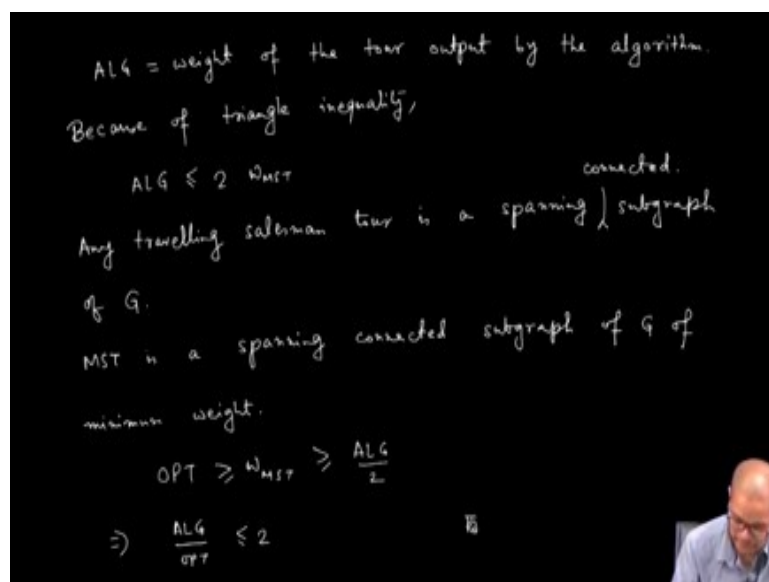 ALG = weight of the tour output by the algorithm.
Because of triangle inequality,
ALG ≤ 2 W_MST
connected.
Any travelling salesman tour is a spanning ⟩ subgraph
of G.
MST is a spanning connected subgraph of G of
minimum weight.
OPT ≥ W_MST ≥ ALG/2
⇒ ALG/OPT ≤ 2